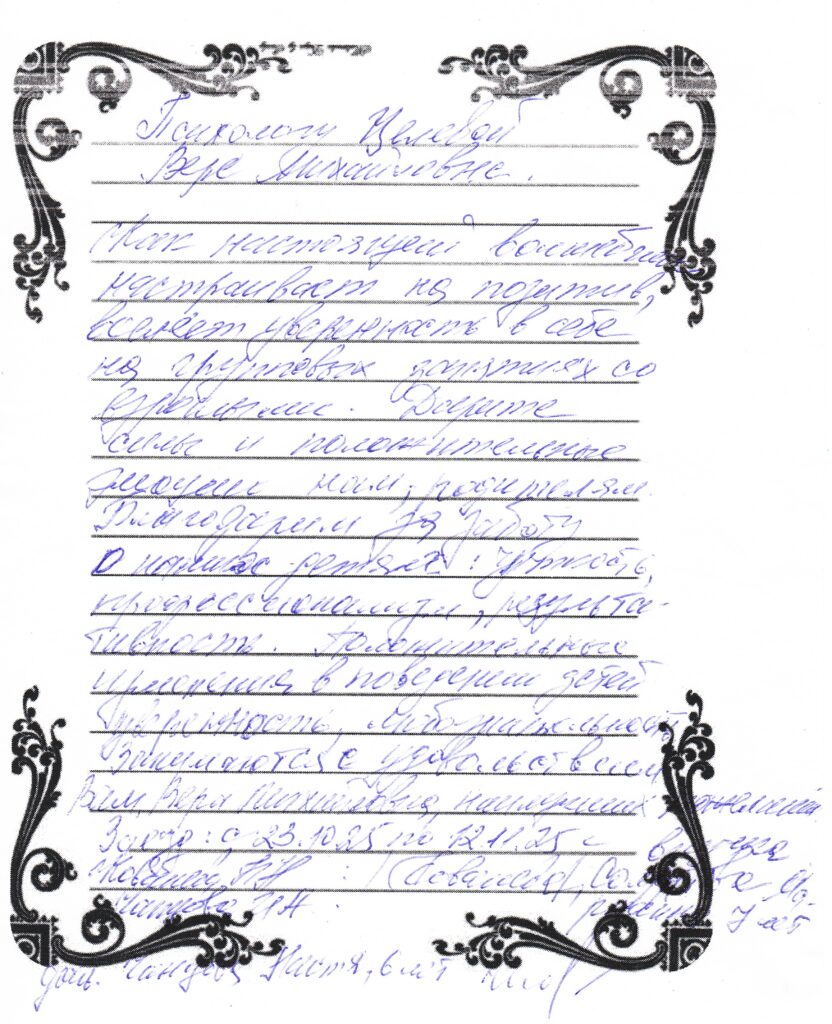 Психологу Целевой
Вере Михайловне.
Как настоящий волшебник
настраивает на позитив,
вселяет уверенность в себе
на групповых занятиях со
взрослыми. Дарите
силы и положительные
эмоции нам, родителям.
Благодарим за заботу
о наших детях: чуткость,
профессионализм, результа-
тивность. Положительные
изменения в поведении детей
уверенность, любознательность
Занимаются с удовольствием
Вам, Вера Михайловна, наилучших пожеланий
Заезд: с 23.10.25 по 12.11.25 г.
7 лет
Настя, 6 лет